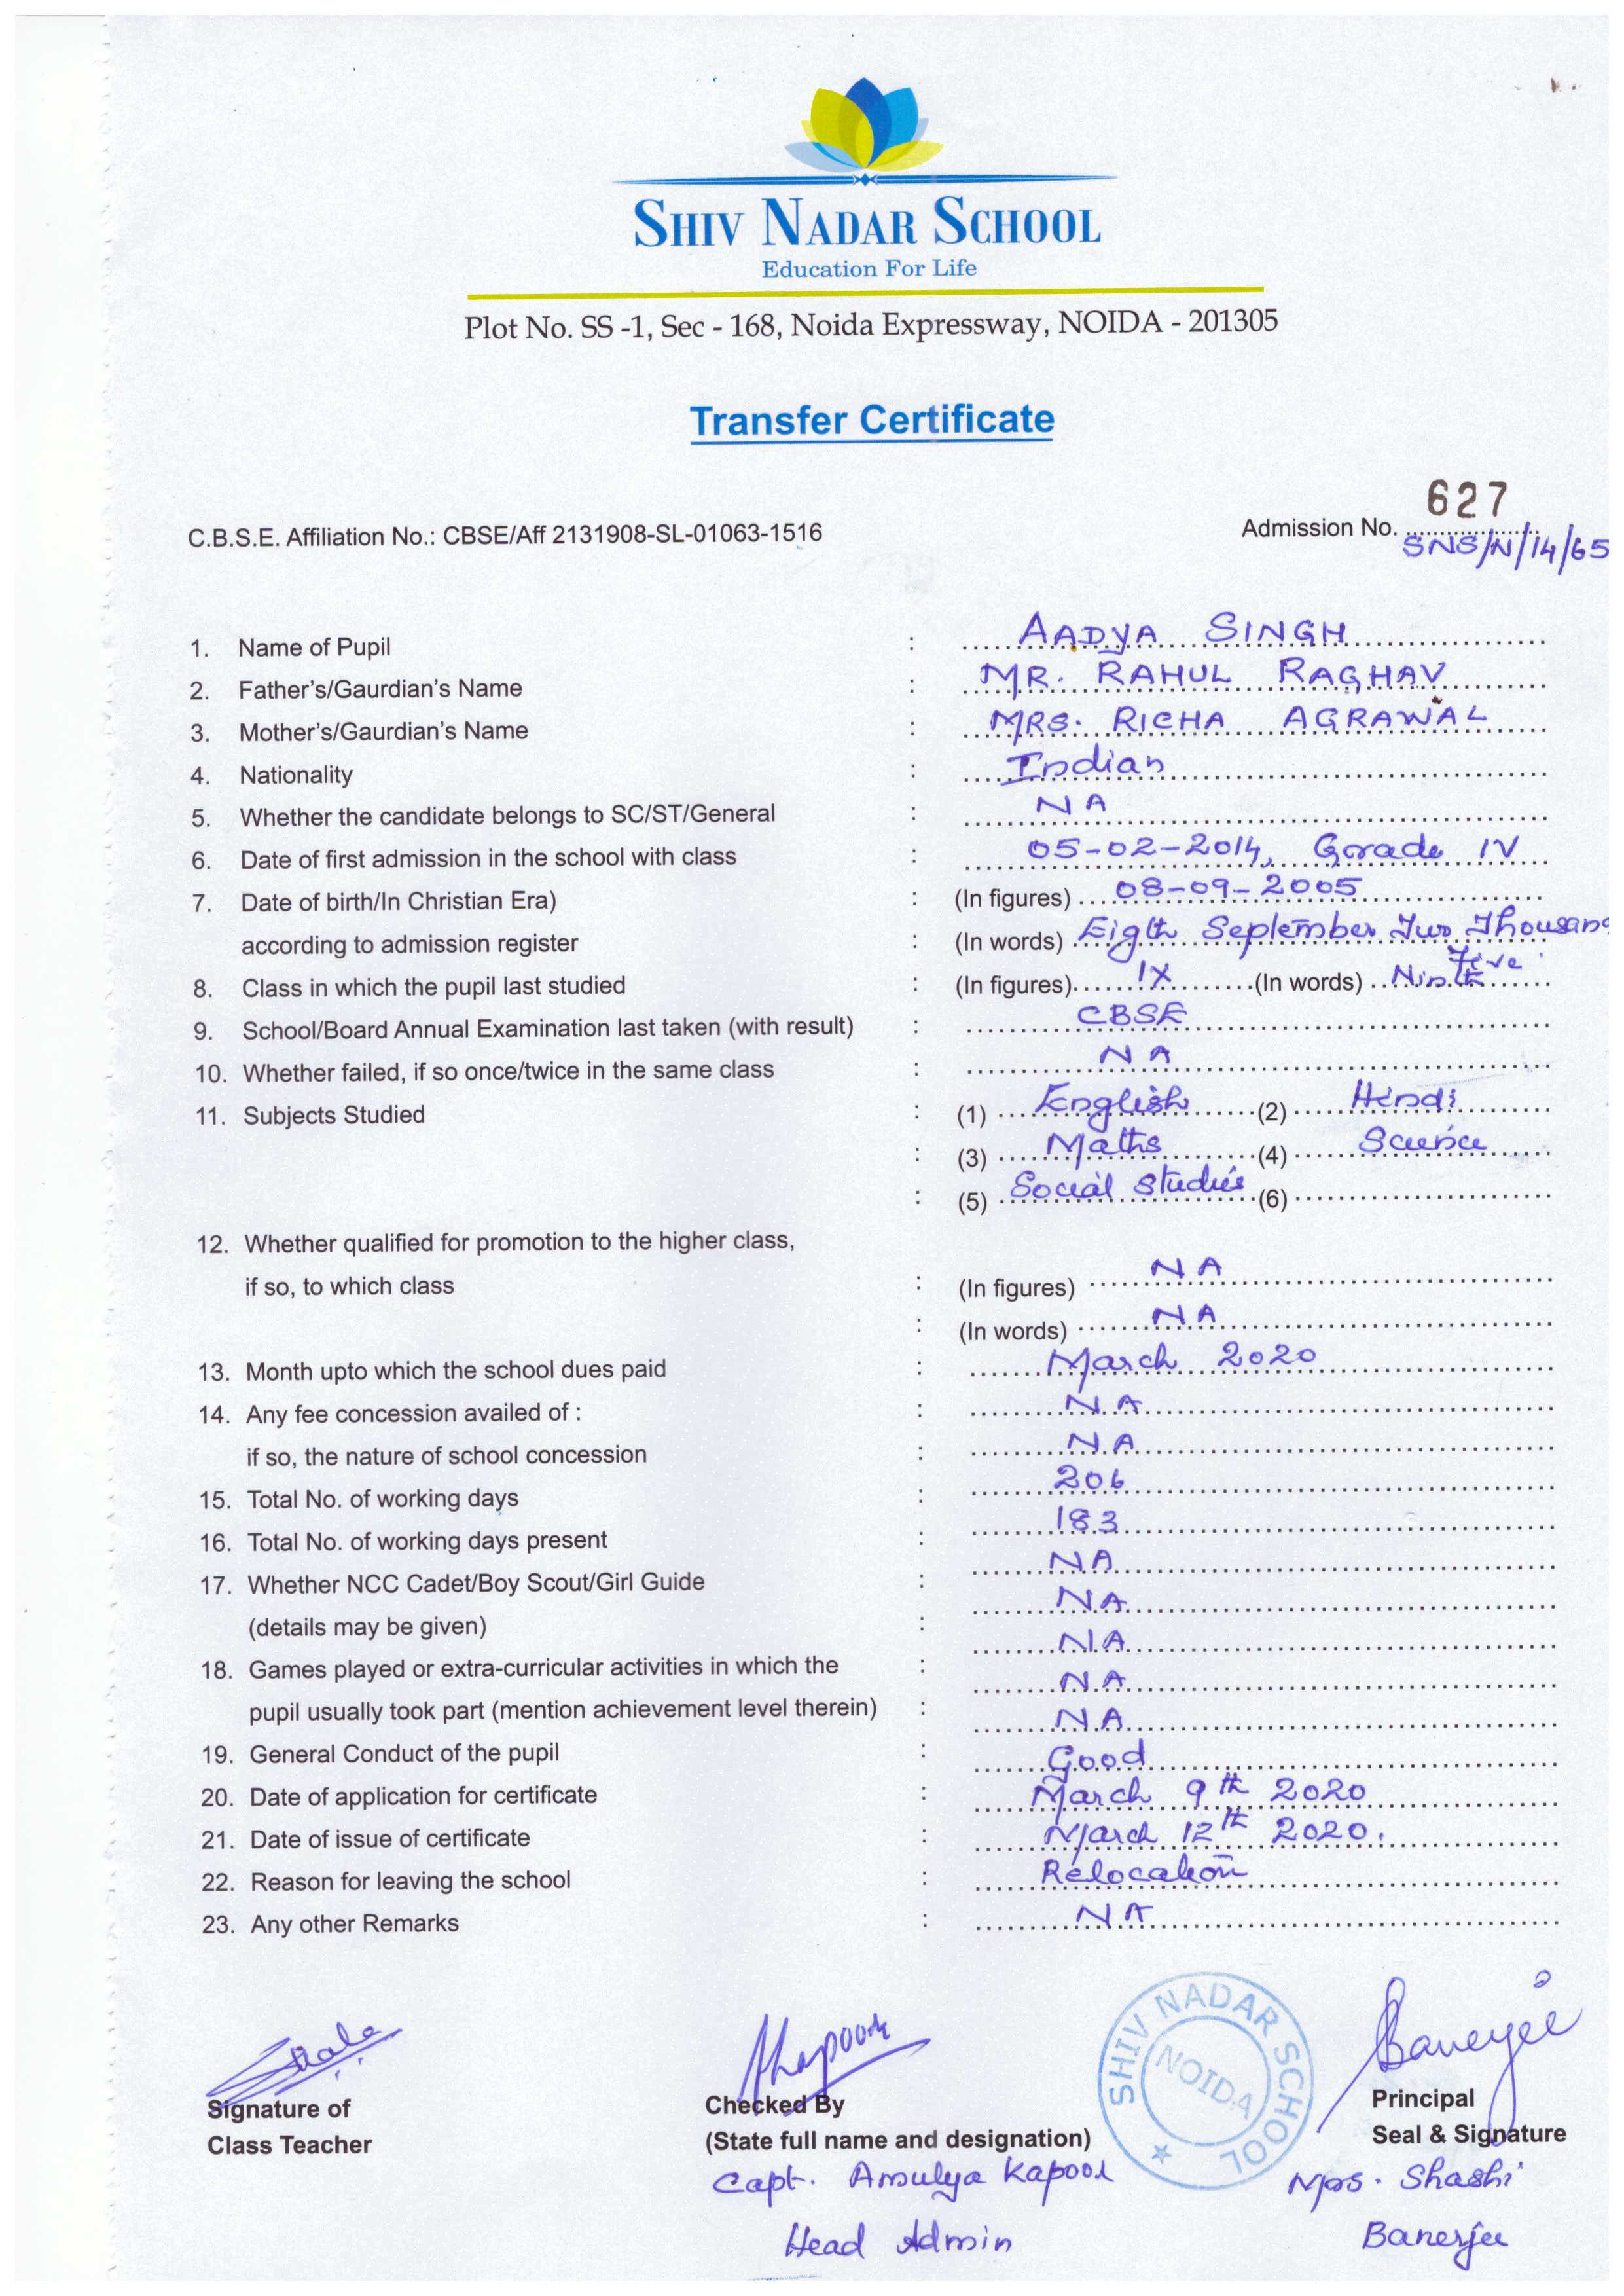 SHIV NADAR SCHOOL
Education For Life
Plot No. SS -1, Sec - 168, Noida Expressway, NOIDA - 201305
Transfer Certificate
627
C.B.S.E. Affiliation No.: CBSE/Aff 2131908-SL-01063-1516 Admission No. SNS/N/14/65
1. Name of Pupil : AADYA SINGH
2. Father's/Gaurdian's Name : MR. RAHUL RAGHAV
3. Mother's/Gaurdian's Name : MRS. RICHA AGRAWAL
4. Nationality : Indian
5. Whether the candidate belongs to SC/ST/General : NA
6. Date of first admission in the school with class : 05-02-2014, Grade IV
7. Date of birth/In Christian Era) : (In figures) 08-09-2005
according to admission register : (In words) Eigth September Two Thousand
Five
8. Class in which the pupil last studied : (In figures) IX (In words) Ninth
9. School/Board Annual Examination last taken (with result) : CBSE
10. Whether failed, if so once/twice in the same class : NA
11. Subjects Studied : (1) English (2) Hindi
: (3) Maths (4) Science
: (5) Social Studies (6)
12. Whether qualified for promotion to the higher class,
if so, to which class : (In figures) NA
: (In words) NA
13. Month upto which the school dues paid : March 2020
14. Any fee concession availed of : : NA
if so, the nature of school concession : NA
15. Total No. of working days : 206
16. Total No. of working days present : 183
17. Whether NCC Cadet/Boy Scout/Girl Guide : NA
NA
(details may be given) : NA
18. Games played or extra-curricular activities in which the : NA
pupil usually took part (mention achievement level therein) : NA
19. General Conduct of the pupil : Good
20. Date of application for certificate : March 9th 2020
21. Date of issue of certificate : March 12th 2020.
22. Reason for leaving the school : Relocation
23. Any other Remarks : NA
SHIV NADAR SCHOOL
NOIDA
Kapoor
Banerjee
Signature of Checked By Principal
Class Teacher (State full name and designation) Seal & Signature
Capt. Amulya Kapoor Mrs. Shashi
Head Admin Banerjee